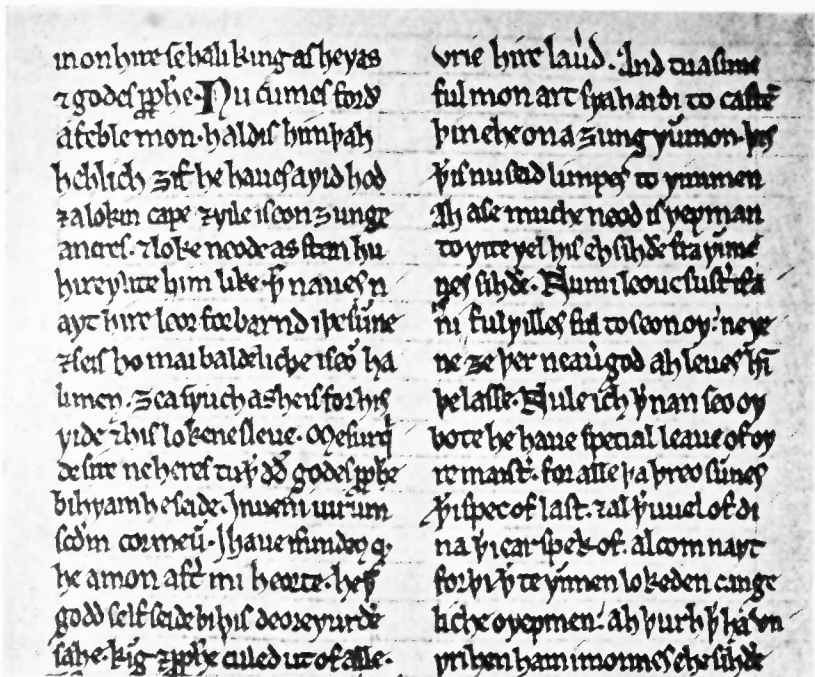 inon hire se hali king as he ƿas
⁊ godes ꝓphe. Nu cumes forð
a feble mon. haldis him þah
hehlich ȝif he haues aƿid hod
⁊ a lokin cape ⁊ ƿile iseon ȝunge
ancres. ⁊ loke neode as stan hu
hire ƿlite him like. þ̄ naues n
aƿt hire leor forbarnd iþe sūne
⁊ seis ho mai baldeliche iseō ha
limen. ȝea sƿuch as he is for his
ƿide ⁊ his lokene sleue. Mesurq̄
desire ne heres tu þ̄ dd̄ godes ꝓphe
bi hƿam he seide. Inueni uirum
scd̄m cor meū. I haue ifunden q̄.
he a mon aft̄ mi heorte. he þ̄
godd self seide bi þis deoreƿurðe
sahe. kīg ⁊ ꝓphe culed ut of alle.
ƿrie hire lau̾d. And tu a sune
ful mon art sƿa hardi to caste
þin ehe on a ȝung ƿūmon. þis
þ̄ is nu seid limpes to ƿimmen
Ah ase muche neod is ƿepman
to ƿite ƿel his ehsihðe fra ƿimē
nes sihðe. Nu mi leoue sust̄
ful ƿilles to seon oƿ. neƿe
ne ȝe þer neau̾ god ah leues hī
þe lasse. Nule ich þ̄ nan seo oƿ
bote he haue special leaue of oƿ
re maist̄. for alle þa þreo sūnes
þ̄ i spec of last. ⁊ al þ̄ uuel of di
na þ̄ i ear spek of. al com naƿt
forþi þ̄ te ƿīmen lokeden cange
liche o ƿepmen. ah þurh þ̄ ha vn
ƿrihen ham i monnes ehesihðe